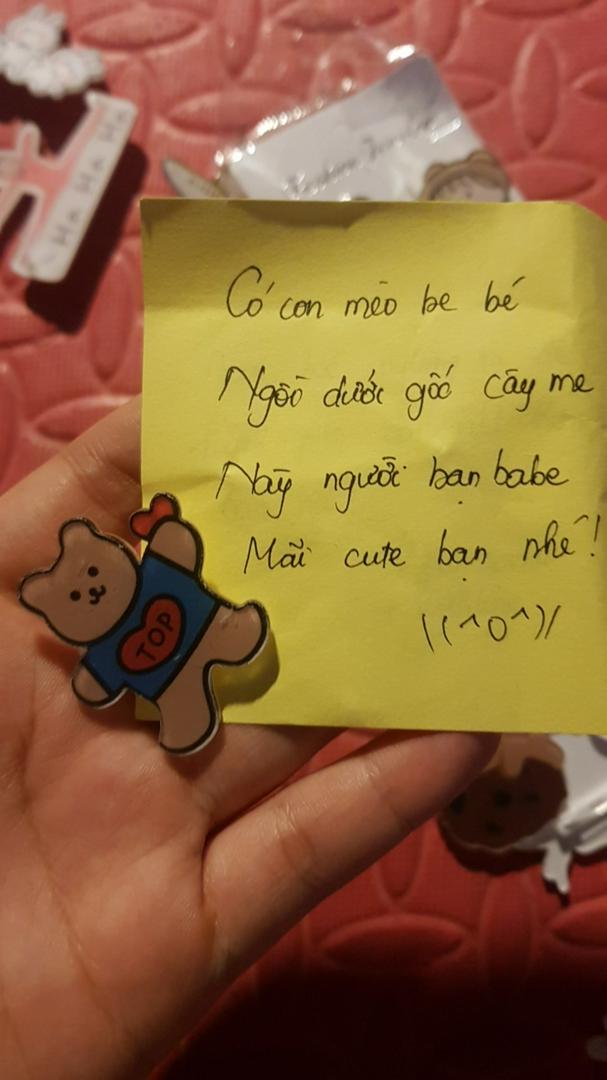 Ha Ha Ha
Có con mèo be bé
Ngồi dưới gốc cây me
Này người bạn babe
Mãi cute bạn nhé!
\((^o^)/
TOP